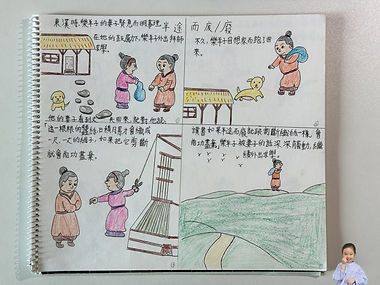 半途而廢/廢
東漢時,樂羊子的妻子賢惠而明事理
在她的鼓勵下,樂羊外出拜師
求學。
不久,樂羊子因想家而跑了回
來。
他的妻子看到丈夫回來,
這一根根的蠶絲日積月累才會織成
一尺一尺的綢子,如果把它剪斷
就會前功盡棄。
讀書如果半途而廢就跟剪斷織的絲一樣,會
前功盡棄,樂羊子被妻子的話深深觸動,繼
續外出求學。